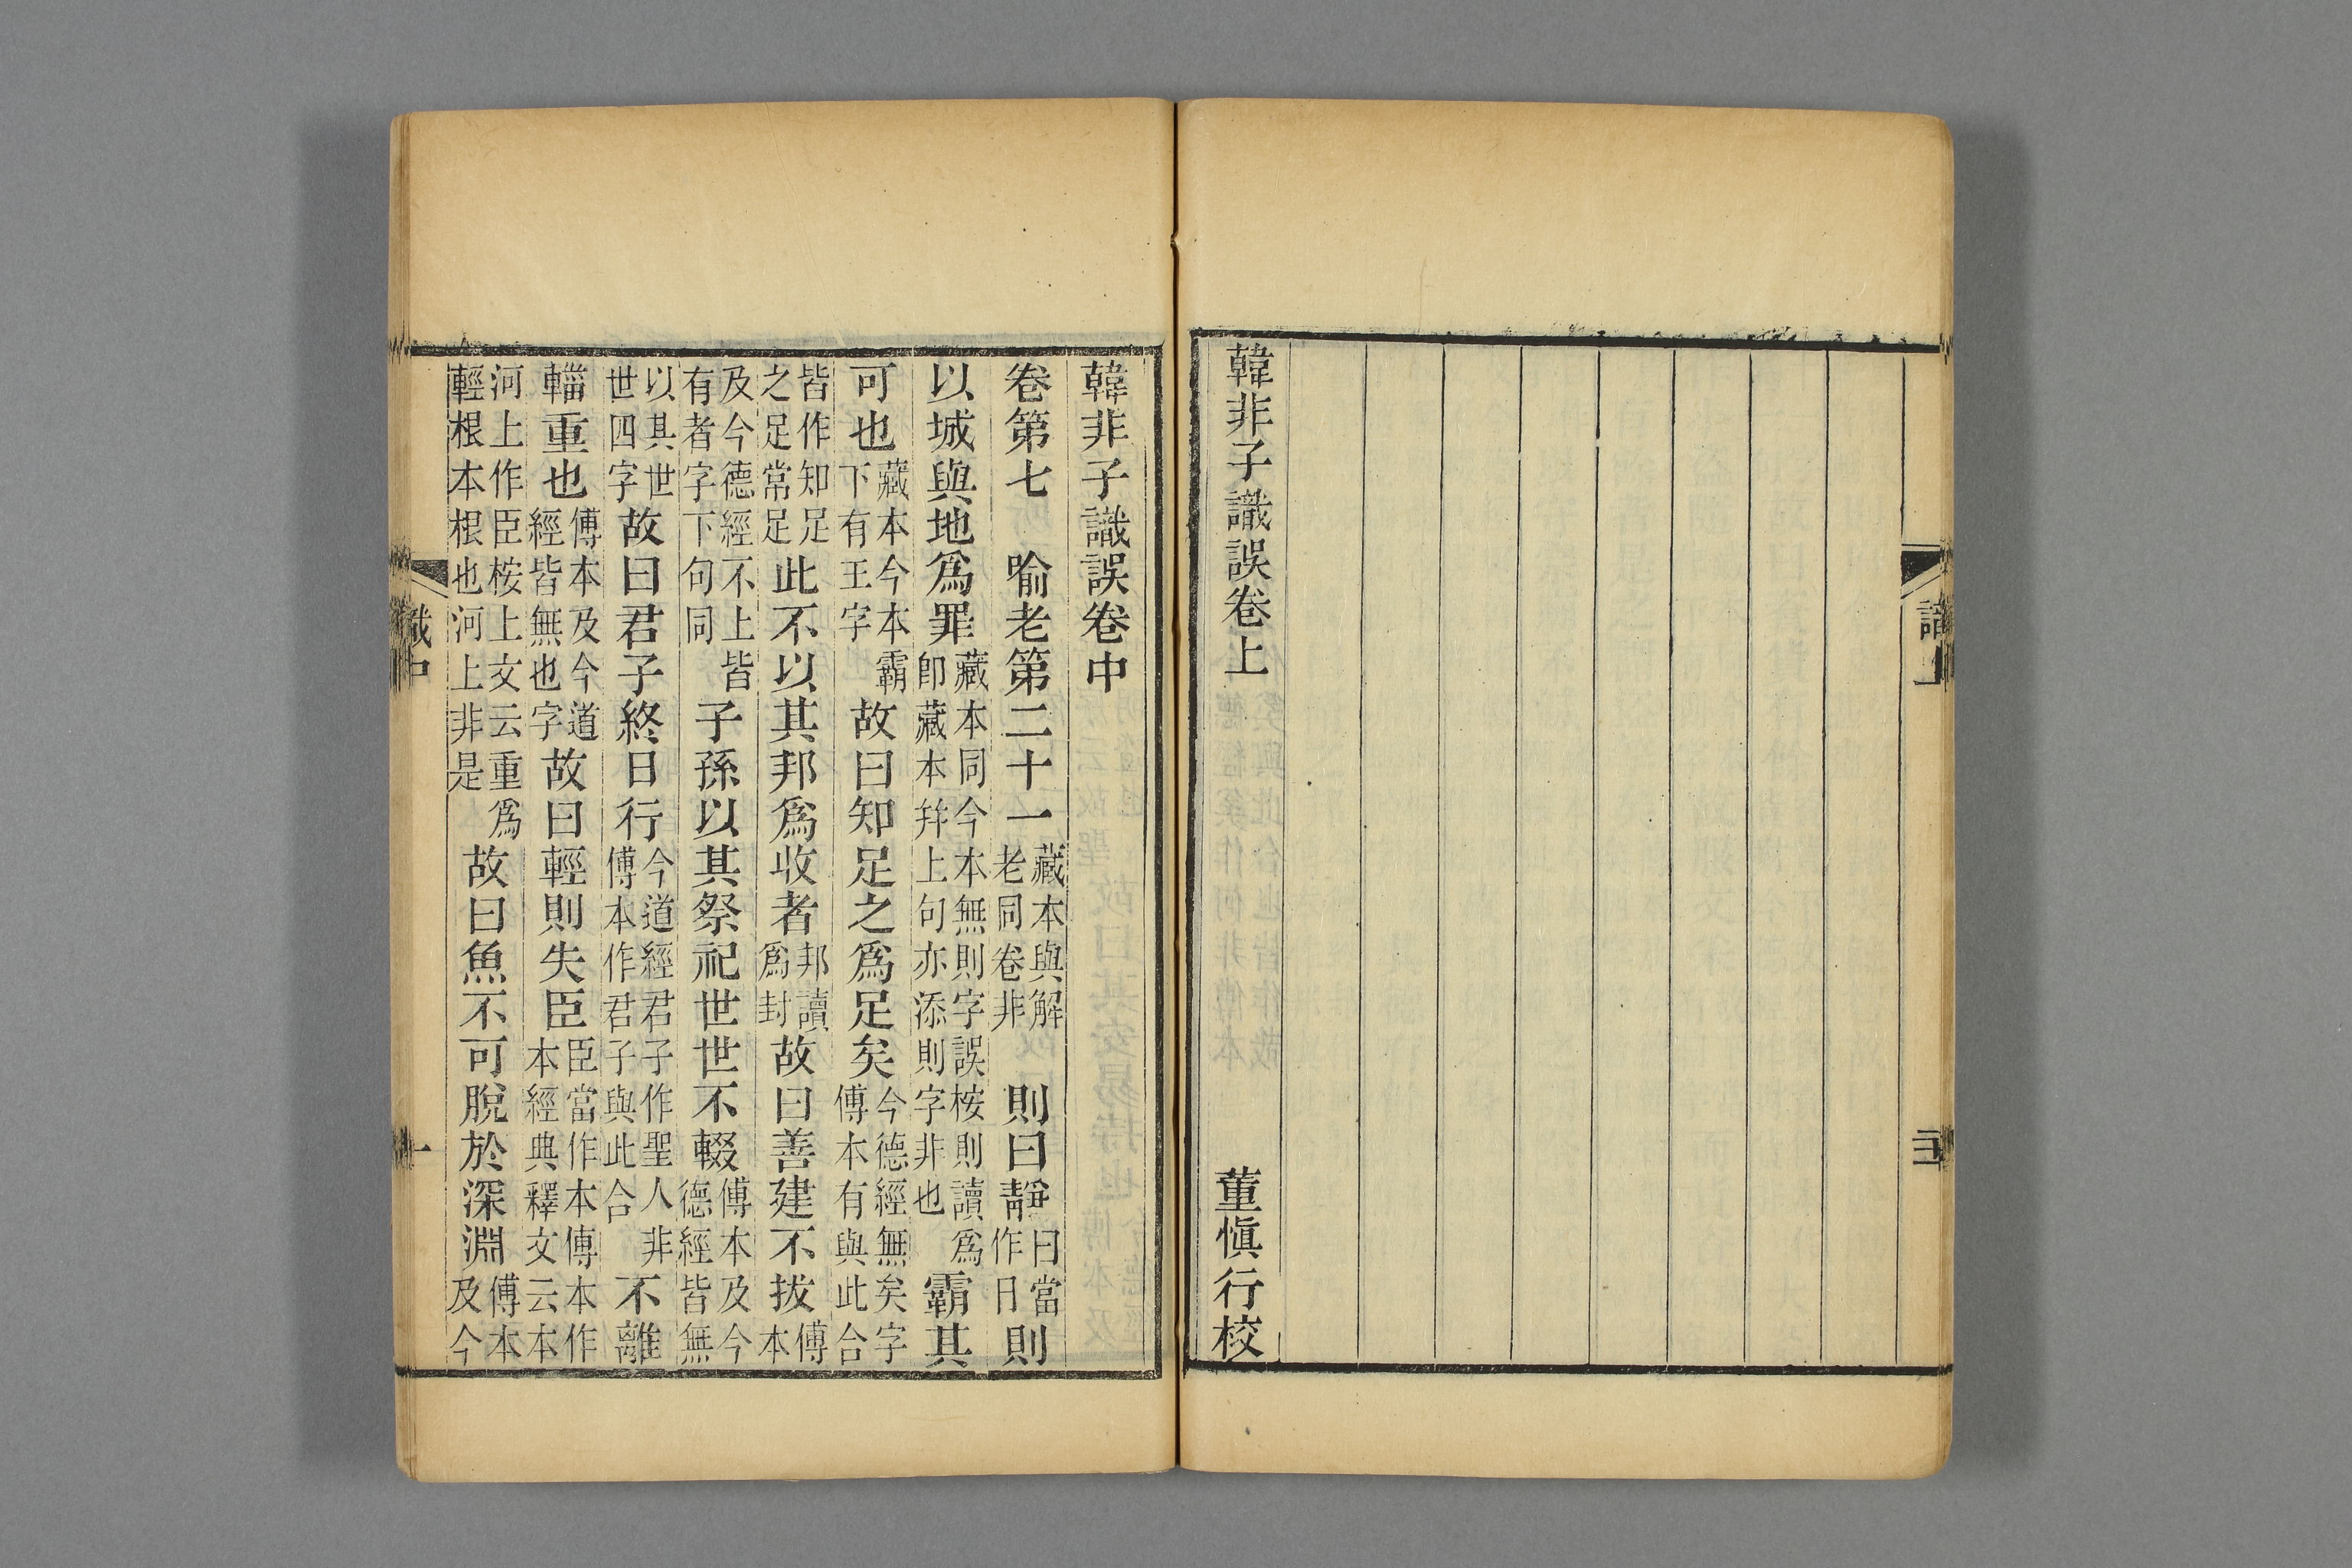 識上
三
韓非子識誤卷上
董愼行校
韓非子識誤卷中
卷第七 喻老第二十一藏本與解老同卷非 則曰靜曰當作日則
以城與地爲罪藏本同今本無則字誤桉則讀爲卽藏本幷上句亦添則字非也霸其
可也藏本今本霸下有王字故曰知足之爲足矣今德經無矣字傅本有與此合
皆作知足之足常足此不以其邦爲收者邦讀爲封故曰善建不拔傅本
及今德經不上皆有者字下句同子孫以其祭祀世世不輟傅本及今德經皆無
以其世世四字故曰君子終日行今道經君子作聖人非傅本作君子與此合不離
輜重也傅本及今道經皆無也字故曰輕則失臣臣當作本傅本作本經典釋文云本
河上作臣桉上文云重爲輕根本根也河上非是故曰魚不可脫於深淵傅本及今
識中
一